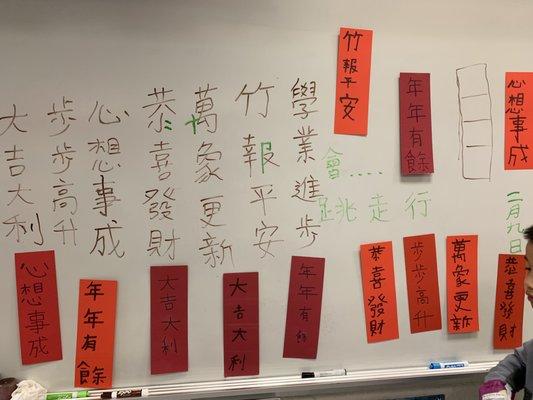 心想事成
年年有餘
竹報平安
二月九日
學業進步
竹報平安
萬象更新
恭喜發財
心想事成
步步高升
大吉大利
會....
跳走行
恭喜發財
萬象更新
步步高升
恭喜發財
年年有餘
大吉大利
大吉大利
年年有餘
心想事成